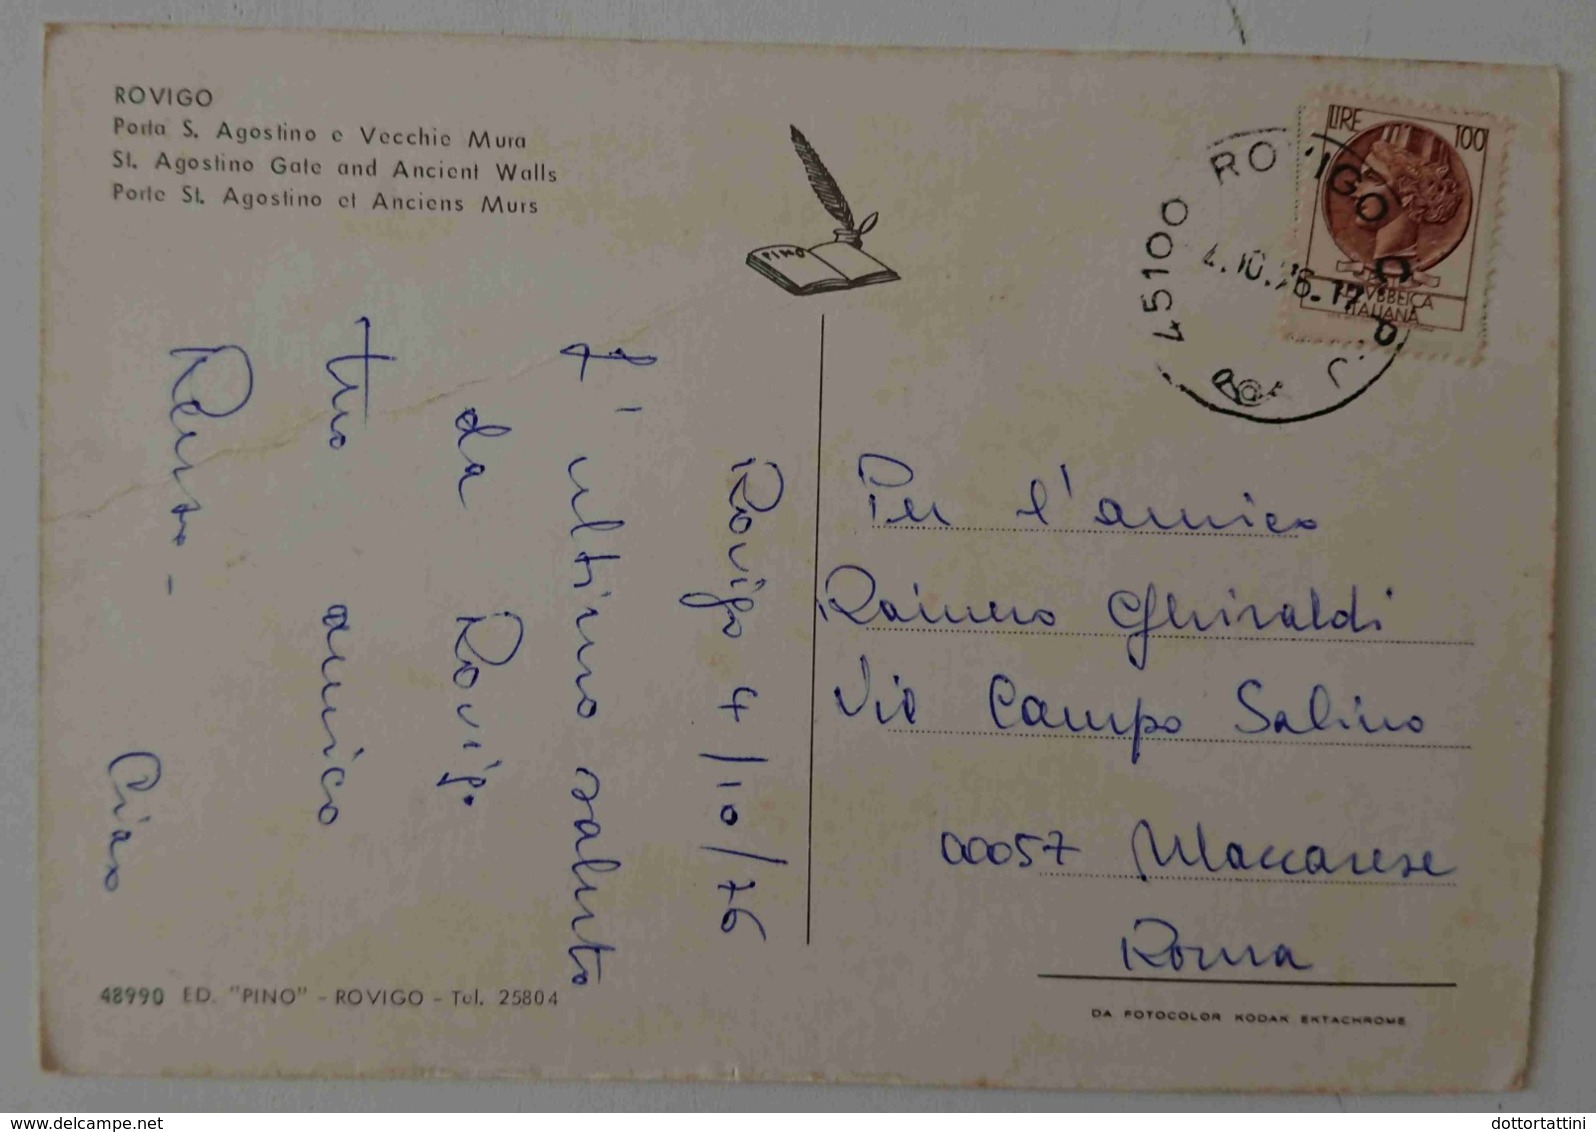 ROVIGO
Porta S. Agostino e Vecchie Mura
St. Agostino Gate and Ancient Walls
Porte St. Agostino et Anciens Murs
PINO
LIRE 100
REPVBBLICA
ITALIANA
45100 ROVIGO
4.10.76.17
Rovigo 4/10/76
L'ultimo saluto
da Rovigo
tuo amico
Renso -
Ciao
Per l'amico
Rainero Ghiraldi
Vie Campo Salino
00057 Maccarese
Roma
48990 ED. "PINO" - ROVIGO - Tel. 25804
DA FOTOCOLOR KODAK EKTACHROME
delcampe.net
dottortattini